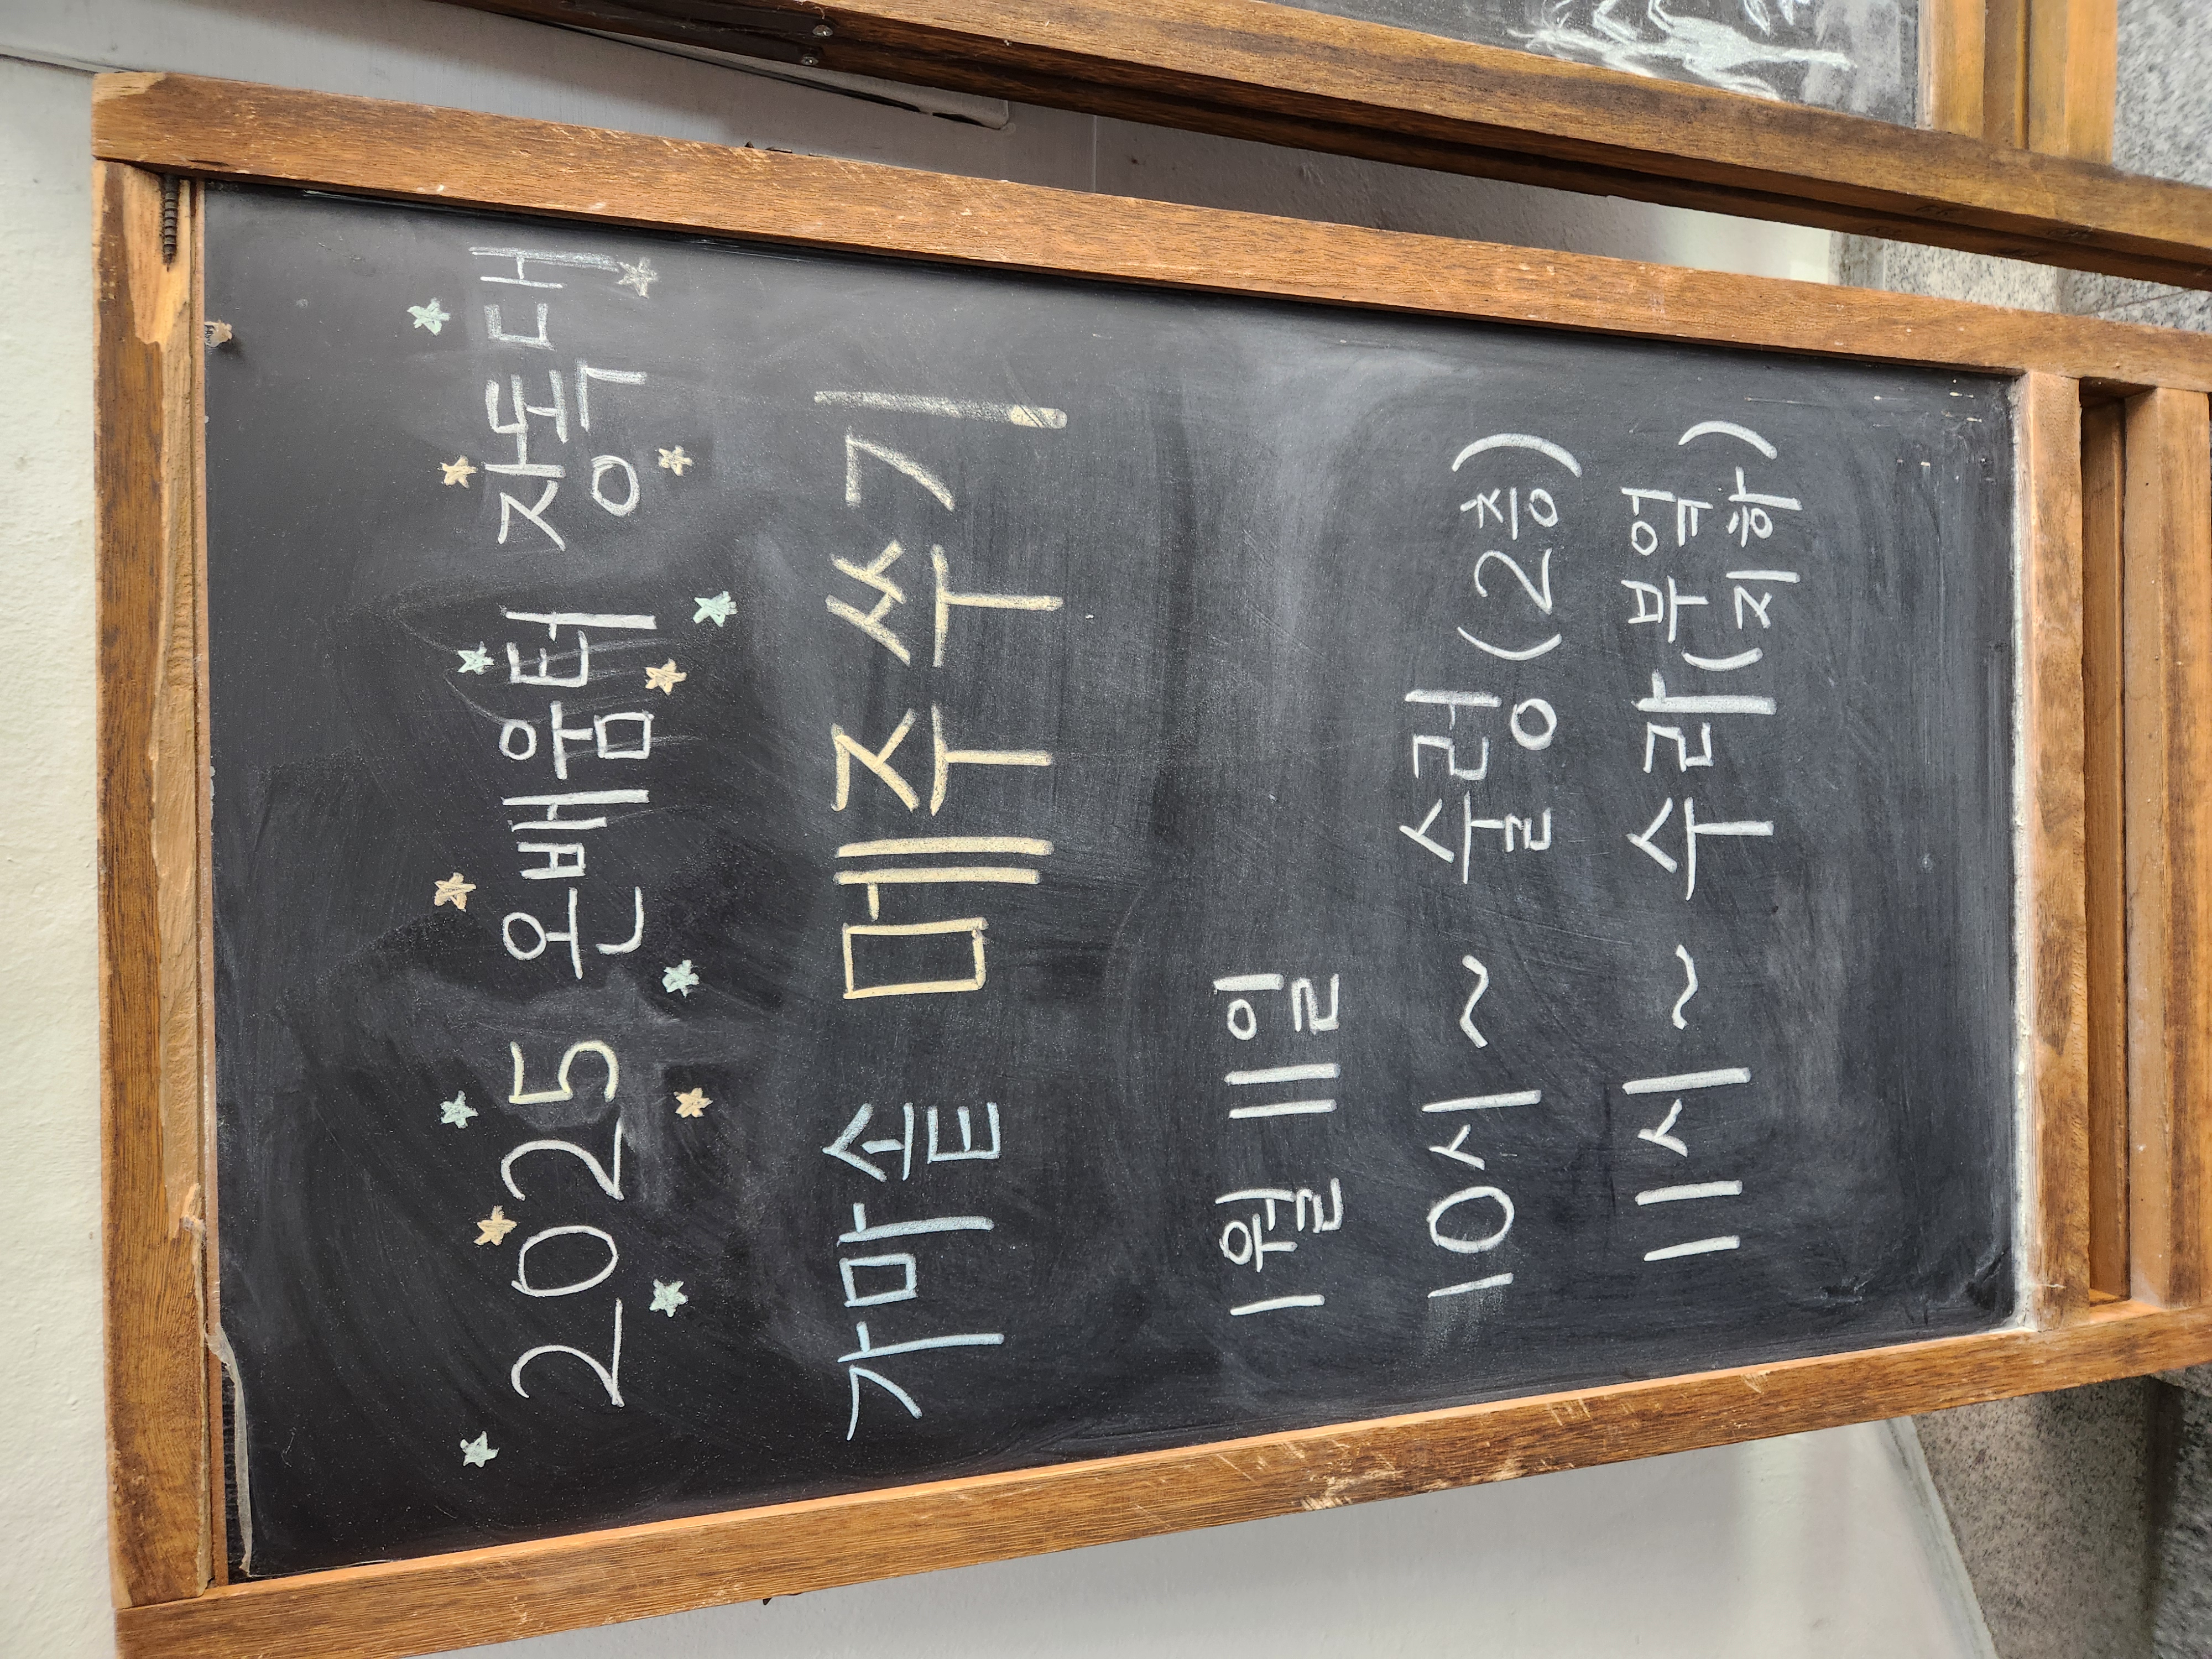 2025 온배움터 장독대
가마솥 메주쑤기
1월 11일
10시 ~ 술렁(2층)
11시 ~ 수라 부엌
(지하)